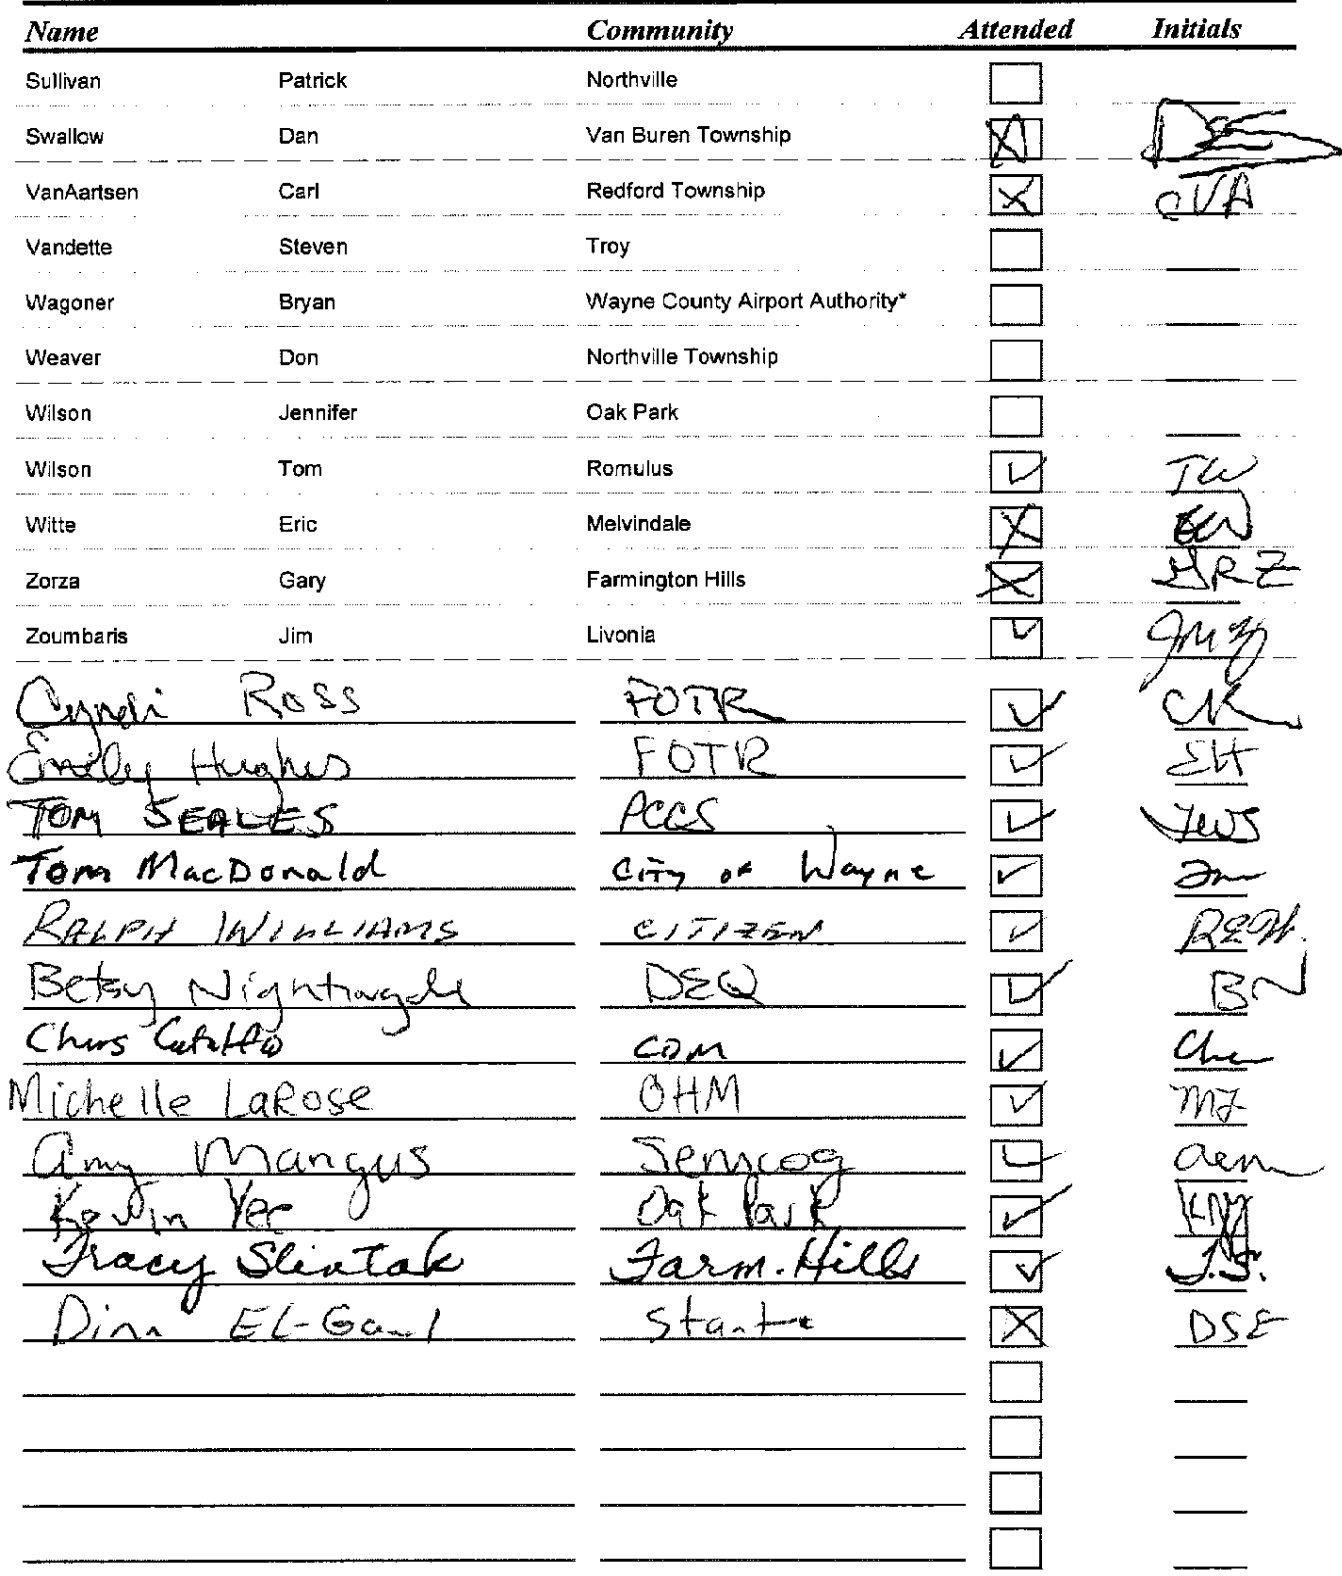 Name Community Attended Initials
Sullivan Patrick Northville
Swallow Dan Van Buren Township
VanAartsen Carl Redford Township CVA
Vandette Steven Troy
Wagoner Bryan Wayne County Airport Authority*
Weaver Don Northville Township
Wilson Jennifer Oak Park
Wilson Tom Romulus TW
Witte Eric Melvindale EW
Zorza Gary Farmington Hills GRZ
Zoumbaris Jim Livonia JMZ
Cyndi Ross FOTR CR
Emily Hughes FOTR EH
TOM SEALES PCCS TWS
Tom MacDonald CITY OF Wayne
RALPH WILLIAMS CITIZEN REW.
Betsy Nightingale DEQ BN
Chris CDM
Michelle LaRose OHM
Amy Mangus Semcog aem
Kevin Yee Oak Park KMY
Tracy Slintak Farm. Hills T.S.
Dina EL-Gamal Stantec DSE